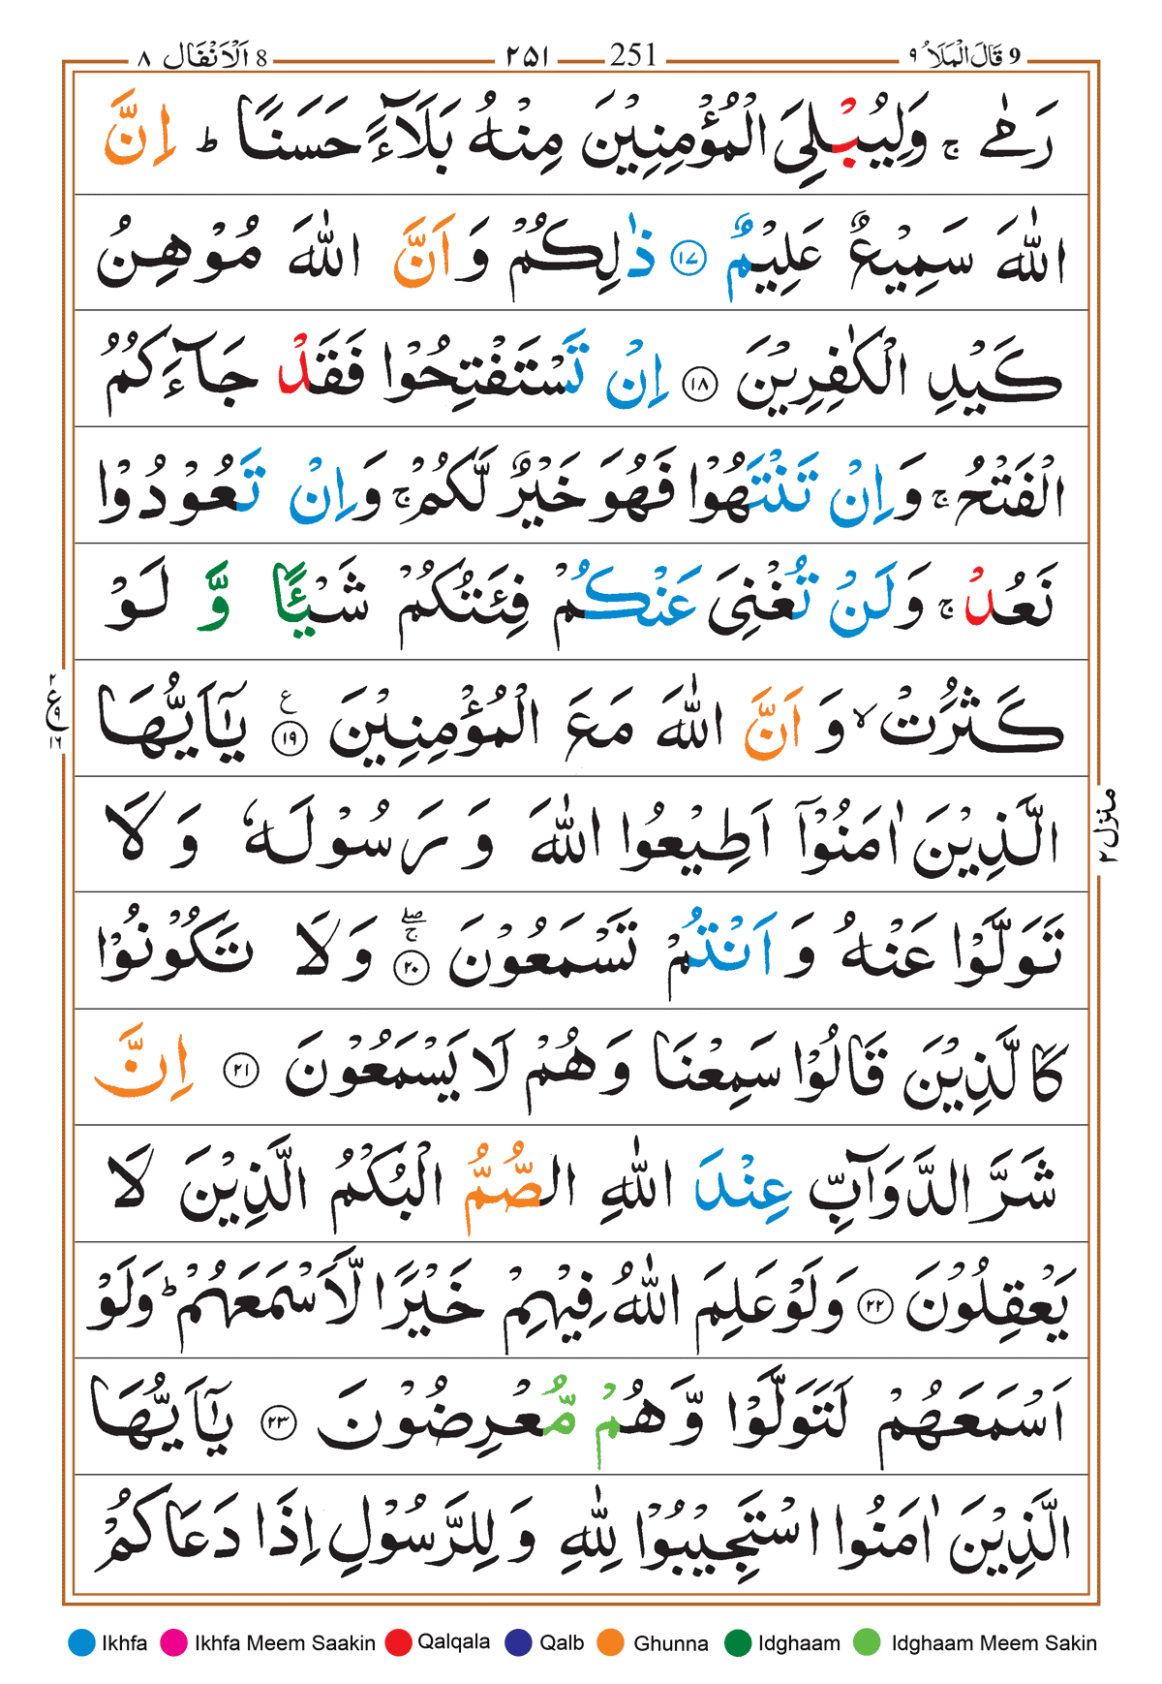 9 قَالَ الْمَلَاُ ٩ 251 ٢٥١ 8 اَلْاَنْفَال ٨
رَمٰى ۚ وَلِيُبْلِىَ الْمُؤْمِنِيْنَ مِنْهُ بَلَآءً حَسَنًا ؕ اِنَّ
اللّٰهَ سَمِيْعٌ عَلِيْمٌ ﴿١٧﴾ ذٰلِكُمْ وَاَنَّ اللّٰهَ مُوْهِنُ
كَيْدِ الْكٰفِرِيْنَ ﴿١٨﴾ اِنْ تَسْتَفْتِحُوْا فَقَدْ جَآءَكُمُ
الْفَتْحُ ۚ وَاِنْ تَنْتَهُوْا فَهُوَ خَيْرٌ لَّكُمْ ۚ وَاِنْ تَعُوْدُوْا
نَعُدْ ۚ وَلَنْ تُغْنِىَ عَنْكُمْ فِئَتُكُمْ شَيْئًا وَّ لَوْ
كَثُرَتْ ۙ وَاَنَّ اللّٰهَ مَعَ الْمُؤْمِنِيْنَ ﴿١٩﴾ ع يٰۤاَيُّهَا
ع ٢ ٩ ١٦
الَّذِيْنَ اٰمَنُوْۤا اَطِيْعُوا اللّٰهَ وَرَسُوْلَهٗ وَلَا
منزل ٢
تَوَلَّوْا عَنْهُ وَاَنْتُمْ تَسْمَعُوْنَ ﴿٢٠﴾ ۚۖ وَلَا تَكُوْنُوْا
كَالَّذِيْنَ قَالُوْا سَمِعْنَا وَهُمْ لَا يَسْمَعُوْنَ ﴿٢١﴾ اِنَّ
شَرَّ الدَّوَآبِّ عِنْدَ اللّٰهِ الصُّمُّ الْبُكْمُ الَّذِيْنَ لَا
يَعْقِلُوْنَ ﴿٢٢﴾ وَلَوْ عَلِمَ اللّٰهُ فِيْهِمْ خَيْرًا لَّاَسْمَعَهُمْ ؕ وَلَوْ
اَسْمَعَهُمْ لَتَوَلَّوْا وَّهُمْ مُّعْرِضُوْنَ ﴿٢٣﴾ يٰۤاَيُّهَا
الَّذِيْنَ اٰمَنُوا اسْتَجِيْبُوْا لِلّٰهِ وَلِلرَّسُوْلِ اِذَا دَعَاكُمْ
Ikhfa Ikhfa Meem Saakin Qalqala Qalb Ghunna Idghaam Idghaam Meem Sakin